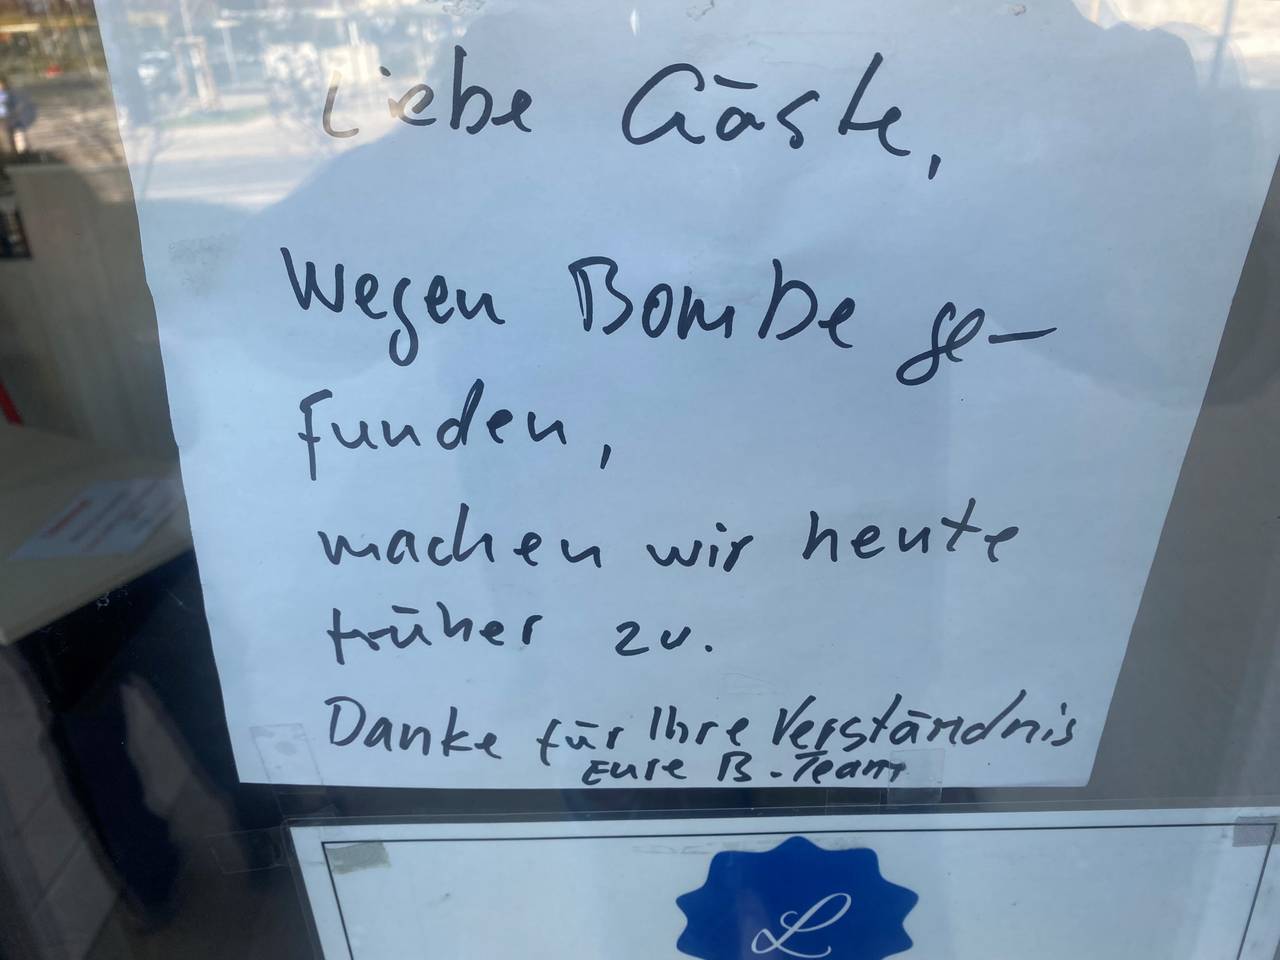 Liebe Gäste,
Wegen Bombe ge-
funden,
machen wir heute
früher zu.
Danke für Ihre Verständnis
Eure B.-Team
L